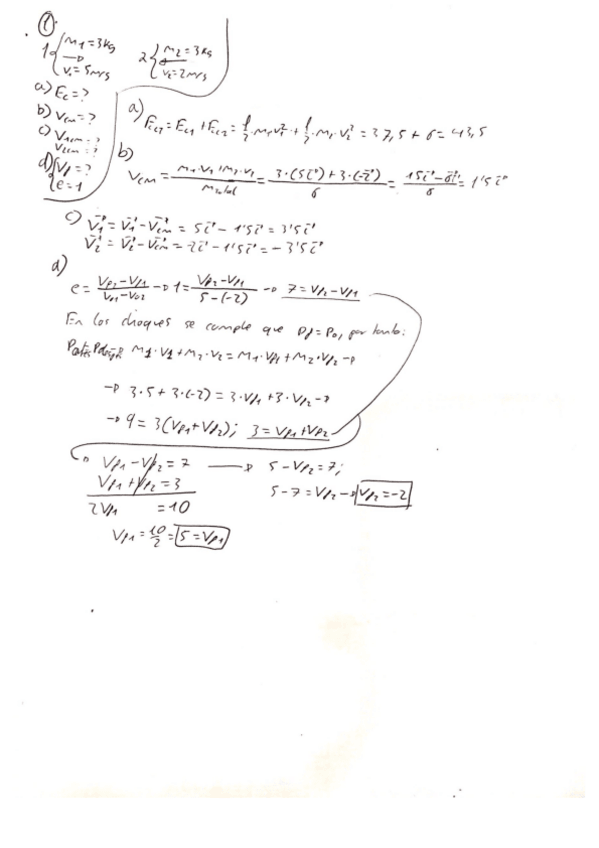 ①
1 { m₁ = 3 kg → v₁ = 5 m/s
2 { m₂ = 3 kg ← v₂ = 2 m/s
a) Ec = ?
b) Vcm = ?
c) V1cm = ? V2cm = ?
d) { Vf = ? e = 1
a) EcT = Ec1 + Ec2 = 1/2 · m₁ · v₁² + 1/2 · m₂ · v₂² = 37,5 + 6 = 43,5
b)
Vcm = (m₁ · v₁ + m₂ · v₂)/m total = (3 · (5i⃗) + 3 · (-2i⃗))/6 = (15i⃗ - 6i⃗)/6 = 1'5i⃗
c) V⃗₁' = V⃗₁ - V⃗cm = 5i⃗ - 1'5i⃗ = 3'5i⃗
V⃗₂' = V⃗₂ - V⃗cm = -2i⃗ - 1'5i⃗ = -3'5i⃗
d)
e = (Vf2 - Vf1)/(V01 - V02) → 1 = (Vf2 - Vf1)/(5 - (-2)) → 7 = Vf2 - Vf1
En los choques se cumple que Pf = P0, por tanto:
m₁ · V₁ + m₂ · V₂ = m₁ · Vf1 + m₂ · Vf2 →
→ 3 · 5 + 3 · (-2) = 3 · Vf1 + 3 · Vf2 →
→ 9 = 3(Vf1 + Vf2); 3 = Vf1 + Vf2
Vf1 - Vf2 = 7 → 5 - Vf2 = 7;
Vf1 + Vf2 = 3 5 - 7 = Vf2 → Vf2 = -2
2Vf1 = 10
Vf1 = 10/2 = 5 = Vf1